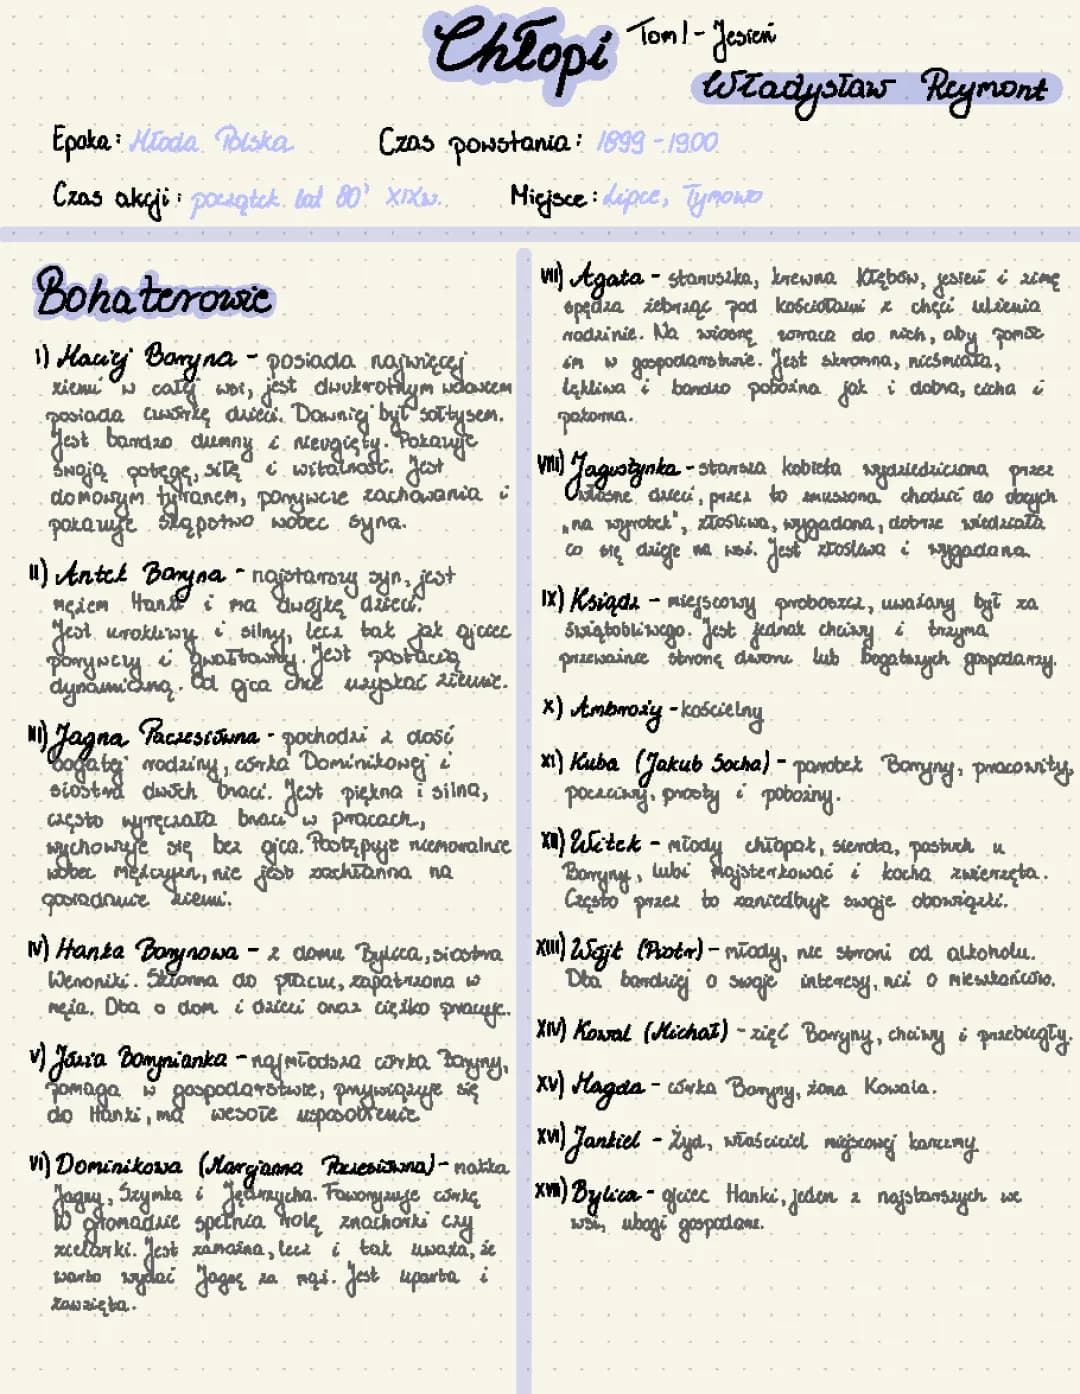 Chłopi Tom I - Jesień
Władysław Reymont
Epoka: Młoda Polska Czas powstania: 1899 - 1900
Czas akcji: początek lat 80' XIXw. Miejsce: Lipce, Tymowo
Bohaterowie
I) Maciej Boryna - posiada najwięcej
ziemi w całej wsi, jest dwukrotnym wdowcem
posiada czwórkę dzieci. Dawniej był sołtysem.
Jest bardzo dumny i nieugięty. Pokazuje
swoją potęgę, siłę i witalność. Jest
domowym tyranem, porywcze zachowania i
pokazuje skąpstwo wobec syna.
II) Antek Boryna - najstarszy syn, jest
mężem Hanki i ma dwójkę dzieci.
Jest urokliwy i silny, lecz tak jak ojciec
porywczy i gwałtowny. Jest postacią
dynamiczną. Od ojca chce uzyskać ziemie.
III) Jagna Paczesiówna - pochodzi z dość
bogatej rodziny, córka Dominikowej i
siostra dwóch braci. Jest piękna i silna,
często wyręczała braci w pracach,
wychowuje się bez ojca. Postępuje niemoralnie
wobec mężczyzn, nie jest zachłanna na
posiadanie ziemi.
IV) Hanka Borynowa - z domu Bylica, siostra
Weroniki. Skłonna do płaczu, zapatrzona w
męża. Dba o dom i dzieci oraz ciężko pracuje.
V) Józia Borynianka - najmłodsza córka Boryny,
pomaga w gospodarstwie, przywiązuje się
do Hanki, ma wesołe usposobienie
VI) Dominikowa (Marcjanna Paczesiówna) - matka
Jagny, Szymka i Jędrzycha. Faworyzuje córkę
W gromadzie spełnia rolę znachorki czy
zielarki. Jest zamożna, lecz i tak uważa, że
warto wydać Jagnę za mąż. Jest uparta i
zawzięta.
VII) Agata - staruszka, krewna Kłębów, jesień i zimę
spędza żebrząc pod kościołami z chęci ulżenia
rodzinie. Na wiosnę wraca do nich, aby pomóc
im w gospodarstwie. Jest skromna, nieśmiała,
lękliwa i bardzo pobożna jak i dobra, cicha i
pokorna.
VIII) Jagustynka - starsza kobieta wydziedziczona przez
własne dzieci, przez to zmuszona chodzić do obcych
„na wyrobek", złośliwa, wygadana, dobrze wiedziała
co się dzieje na wsi. Jest złośliwa i wygadana.
IX) Ksiądz - miejscowy proboszcz, uważany był za
świątobliwego. Jest jednak chciwy i trzyma
przeważnie stronę dworu lub bogatszych gospodarzy.
X) Ambroży - kościelny
XI) Kuba (Jakub Socha) - parobek Boryny, pracowity,
poczciwy, prosty i pobożny.
XII) Witek - młody chłopak, sierota, pastuch u
Boryny, lubi majsterkować i kocha zwierzęta.
Często przez to zaniedbuje swoje obowiązki.
XIII) Wójt (Piotr) - młody, nie stroni od alkoholu.
Dba bardziej o swoje interesy, niż o mieszkańców.
XIV) Kowal (Michał) - zięć Boryny, chciwy i przebiegły.
XV) Magda - córka Boryny, żona Kowala.
XVI) Jankiel - Żyd, właściciel miejscowej karczmy
XVII) Bylica - ojciec Hanki, jeden z najstarszych we
wsi, ubogi gospodarz.